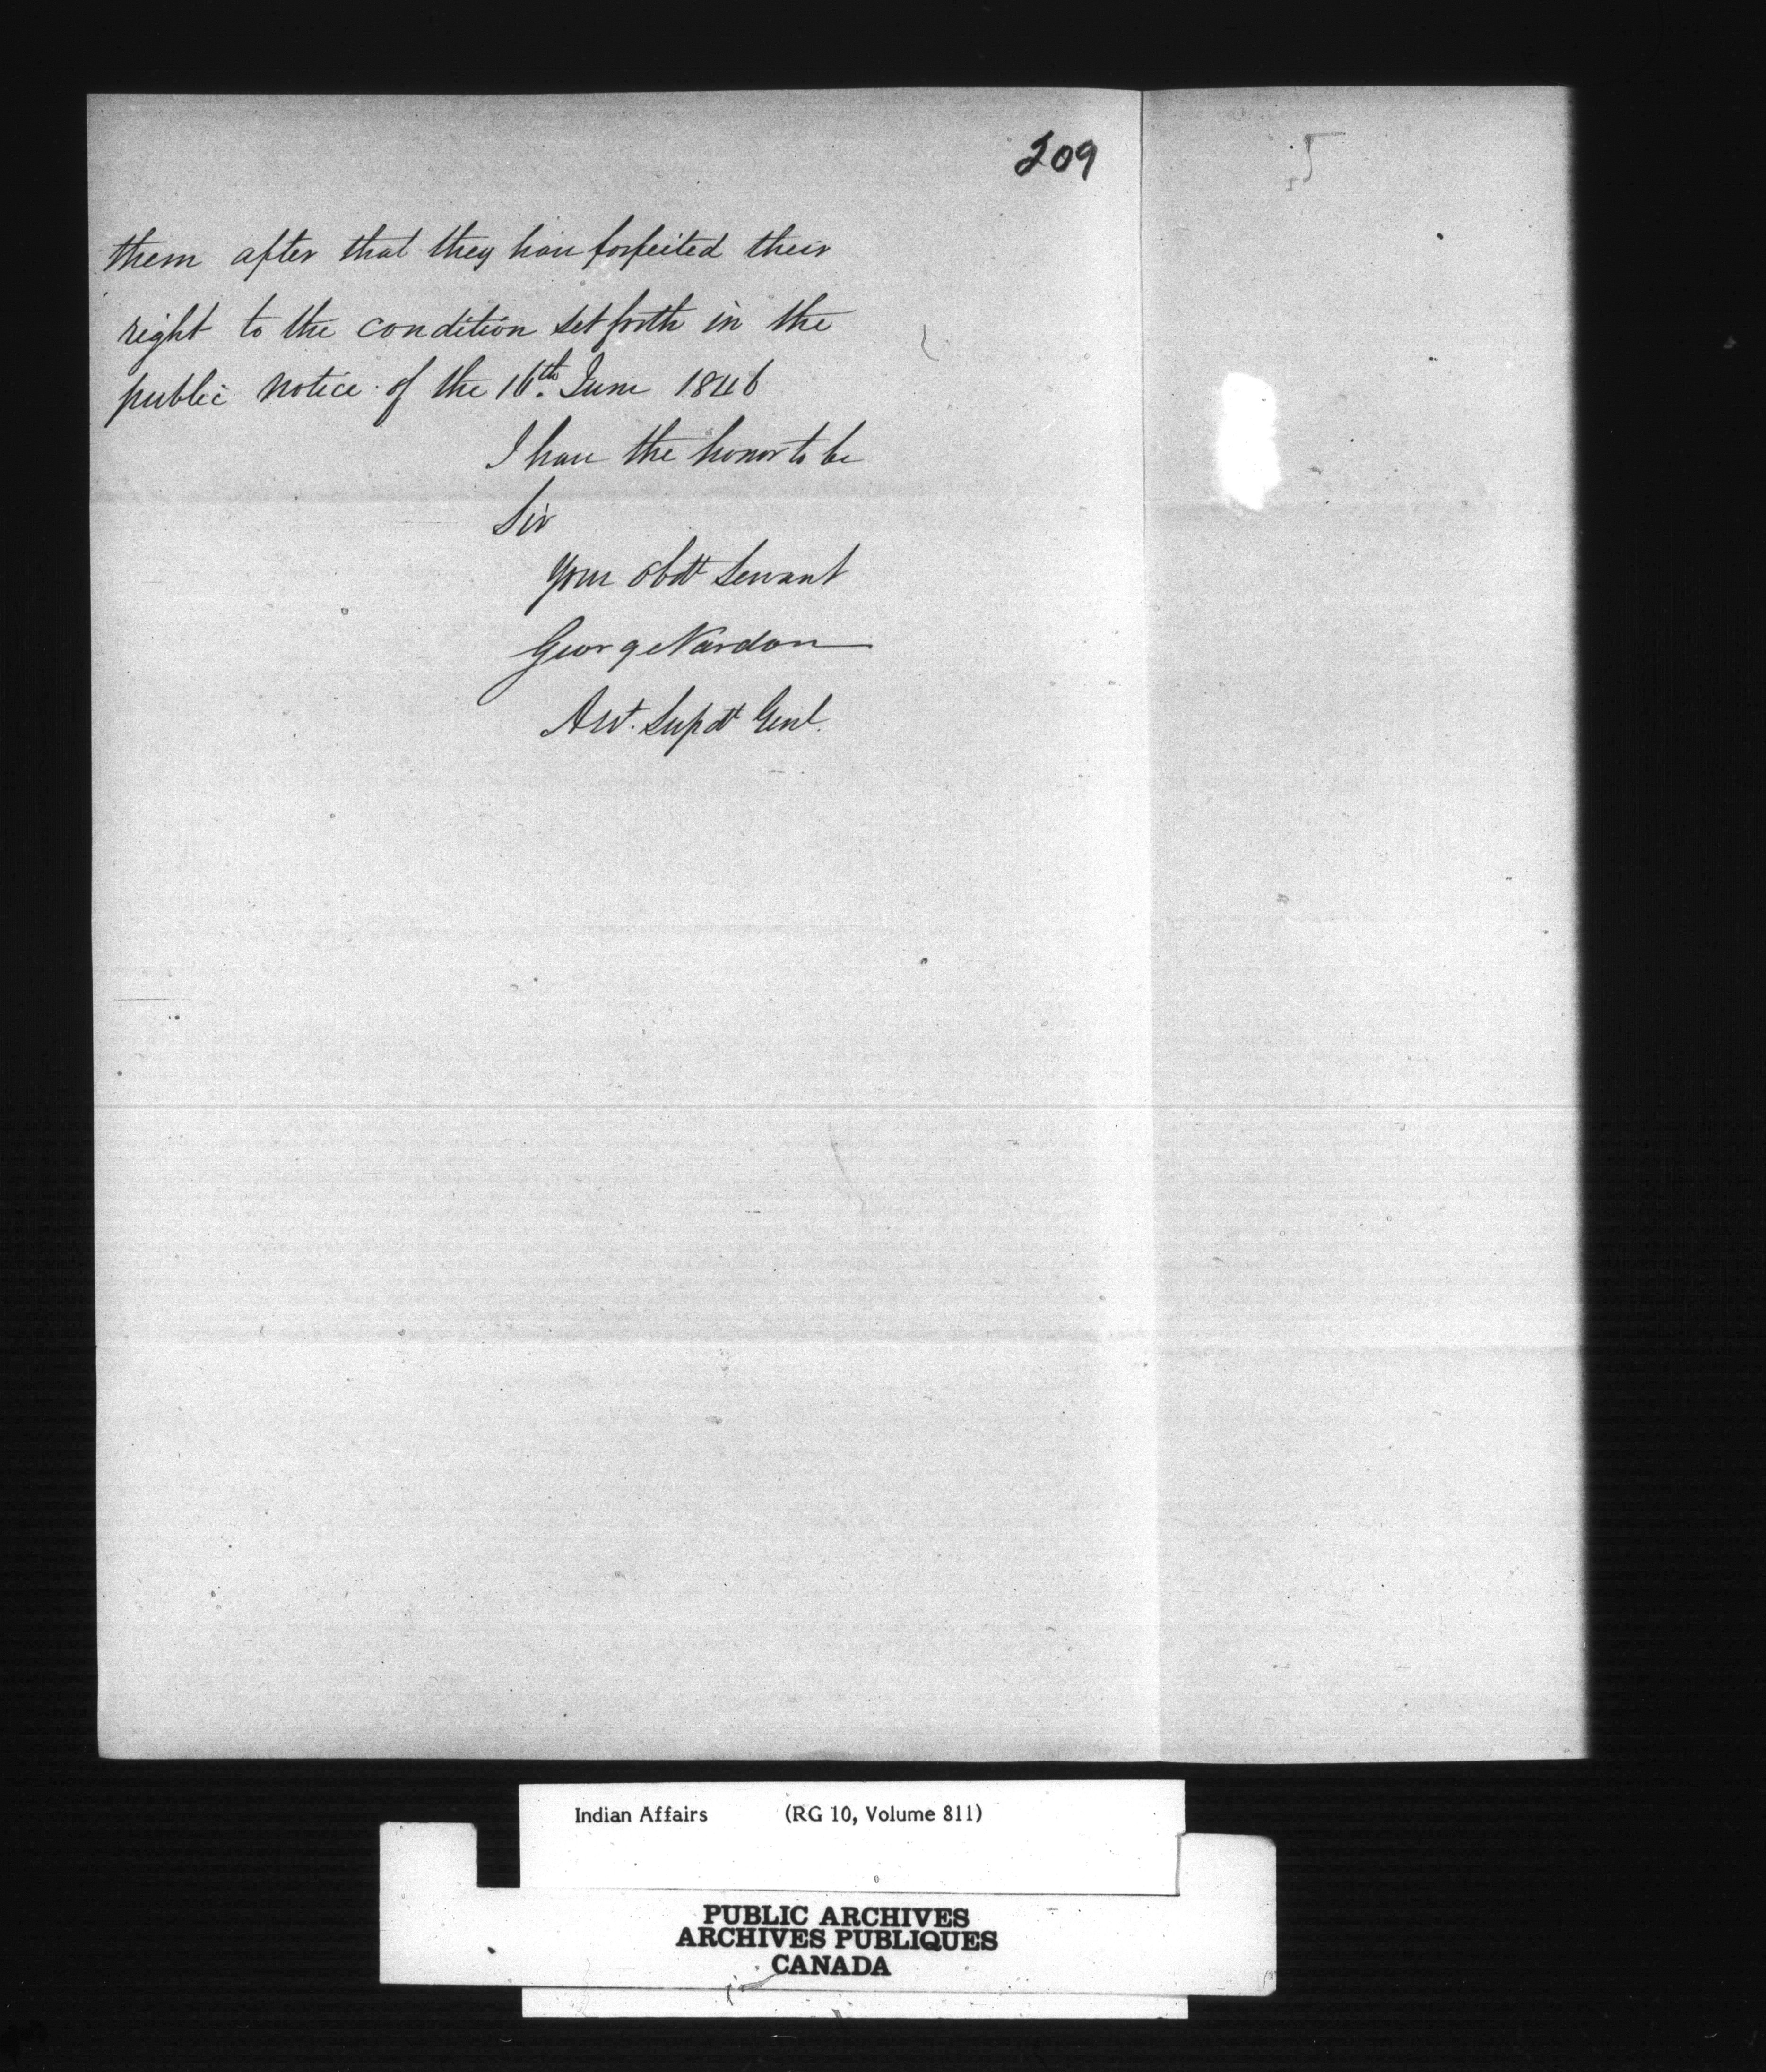 209
them after that they have forfeited their
right to the condition set forth in the
public notice of the 16th. June 1846
I have the honor to be
Sir
Your obdt Servant
George Vardon
Asst. Supdt Genl.
Indian Affairs (RG 10, Volume 811)
PUBLIC ARCHIVES
ARCHIVES PUBLIQUES
CANADA